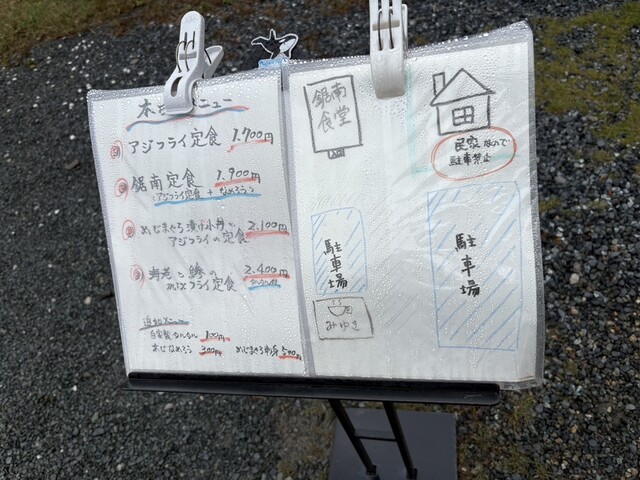 メニュー
アジフライ定食 1.700円
鋸南定食 1.900円
アジフライ定食 + なめろう
めじまぐろ漬け小丼と
アジフライの定食 2.100円
海老と鯵の
mixフライ定食 2.400円
追加メニュー
自家製タルタル 100円
本日なめろう 300円
めじまぐろ刺身 500円
鋸南
食堂
民家なので
駐車禁止
駐車場
駐車場
みゆき